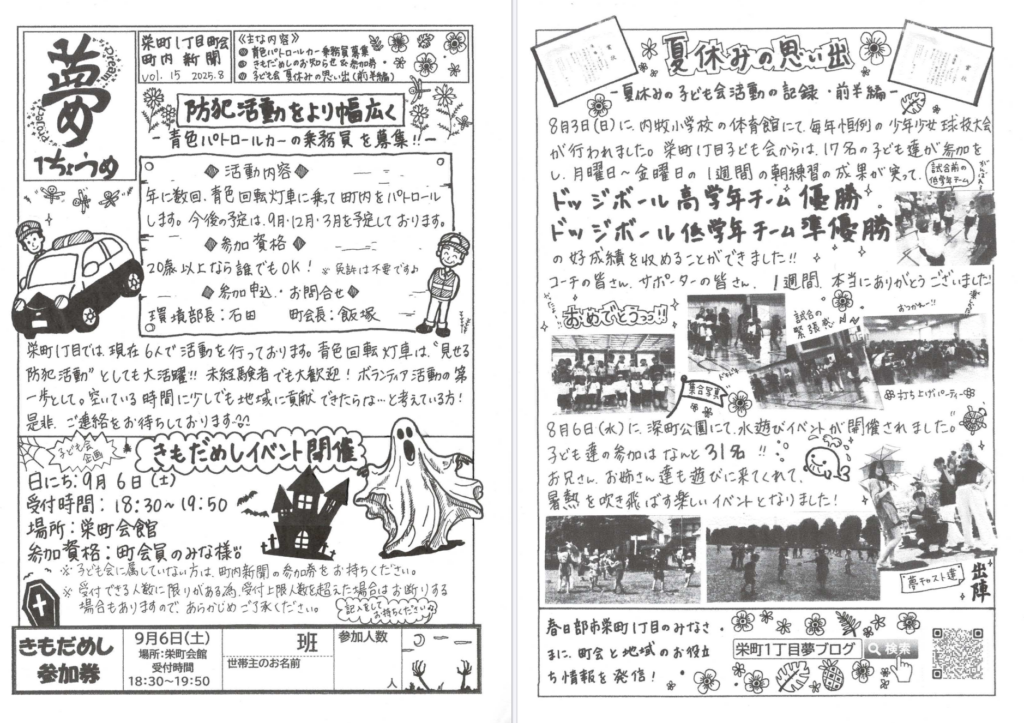 夢
Dream
1ちょうめ
栄町1丁目町会
町内新聞
vol. 15 2025.8
《主な内容》
青色パトロールカー乗務員募集
きもだめしのお知らせと参加券
子ども会 夏休みの思い出(前半編)
防犯活動をより幅広く
-青色パトロールカーの乗務員を募集!!-
◆活動内容◆
年に数回、青色回転灯車に乗って町内をパトロール
します。今後の予定は、9月・12月・3月を予定しております。
◆参加資格◆
20歳以上なら誰でもOK! ※免許は不要です♪
◆参加申込・お問合せ◆
環境部長:石田 町会長:飯塚
栄町1丁目では、現在6人で活動を行っております。青色回転灯車は、"見せる
防犯活動"としても大活躍!! 未経験者でも大歓迎! ボランティア活動の第
一歩として。空いている時間に少しでも地域に貢献できたらな…と考えている方!
是非、ご連絡をお待ちしております
子ども会
企画
きもだめしイベント開催
日にち:9月6日(土)
受付時間:18:30~19:50
場所:栄町会館
参加資格:町会員のみな様
※子ども会に属していない方は、町内新聞の参加券をお持ちください。
※受付できる人数に限りがある為、受付上限人数を超えた場合はお断りする
場合もありますので、あらかじめご了承ください。
記入をして
お持ちください♪
きもだめし
参加券
9月6日(土)
場所:栄町会館
受付時間
18:30~19:50
班
世帯主のお名前
参加人数
人
夏休みの思い出
-夏休みの子ども会活動の記録・前半編-
8月3日(日)に、内牧小学校の体育館にて、毎年恒例の少年少女球技大会
が行われました。栄町1丁目子ども会からは、17名の子ども達が参加を
し、月曜日~金曜日の1週間の朝練習の成果が実って、
試合前の
低学年チーム
ドッジボール高学年チーム優勝
ドッジボール低学年チーム準優勝
の好成績を収めることができました!!
コーチの皆さん、サポーターの皆さん、1週間、本当にありがとうございました!
おめでとうっっ!!
試合の
緊張感
おつかれー!!
集合写真
打ち上げパーティー
8月6日(水)に、深町公園にて、水遊びイベントが開催されました。
子ども達の参加はなんと31名!!
お兄さん、お姉さん達も遊びに来てくれて、
暑熱を吹き飛ばす楽しいイベントとなりました!
"夢キャスト達"
出陣
春日部市栄町1丁目のみなさ
まに、町会と地域のお役立
ち情報を発信!
栄町1丁目夢ブログ
検索